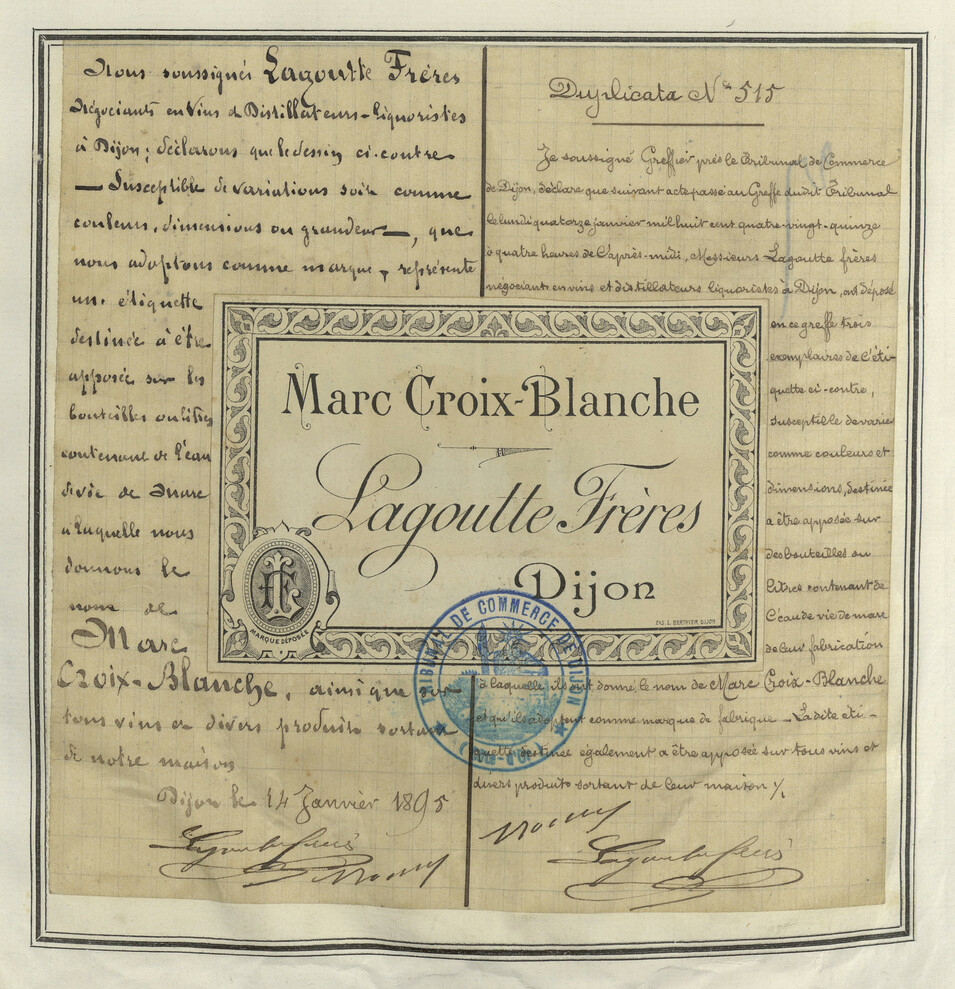 Nous soussignés Lagoutte Frères
Négociants en Vins & Distillateurs-Liquoristes
à Dijon; déclarons que le dessin ci-contre
— Susceptible de variations soit comme
couleurs, dimensions ou grandeur —, que
nous adoptons comme marque, représente
une étiquette
destinée à être
apposée sur les
bouteilles ou litres
contenant de l'eau
de vie de Marc
à laquelle nous
donnons le
nom de
Marc
Croix-Blanche, ainsi que sur
tous vins et divers produits sortant
de notre maison
Dijon le 14 Janvier 1895
Lagoutte frères
Duplicata No 515
Je soussigné Greffier près le Tribunal de Commerce
de Dijon, déclare que suivant acte passé au Greffe dudit Tribunal
le lundi quatorze janvier mil huit cent quatre-vingt-quinze
à quatre heures de l'après-midi, Messieurs Lagoutte frères
négociants en vins et distillateurs liquoristes à Dijon, ont déposé
en ce greffe trois
exemplaires de l'éti-
quette ci-contre,
susceptible de varier
comme couleurs et
dimensions, destinée
a être apposée sur
des bouteilles ou
litres contenant de
l'eau de vie de marc
de leur fabrication
à laquelle ils ont donné le nom de Marc Croix-Blanche
et qu'ils adoptent comme marque de fabrique — La dite éti-
quette destinée également a être apposée sur tous vins et
divers produits sortant de leur maison ./.
Lagoutte frères
Marc Croix-Blanche
Lagoutte Frères
Dijon
MARQUE DÉPOSÉE
LAS. L. BERTHIER, DIJON
TRIBUNAL DE COMMERCE DE DIJON
(Côte-d'Or)